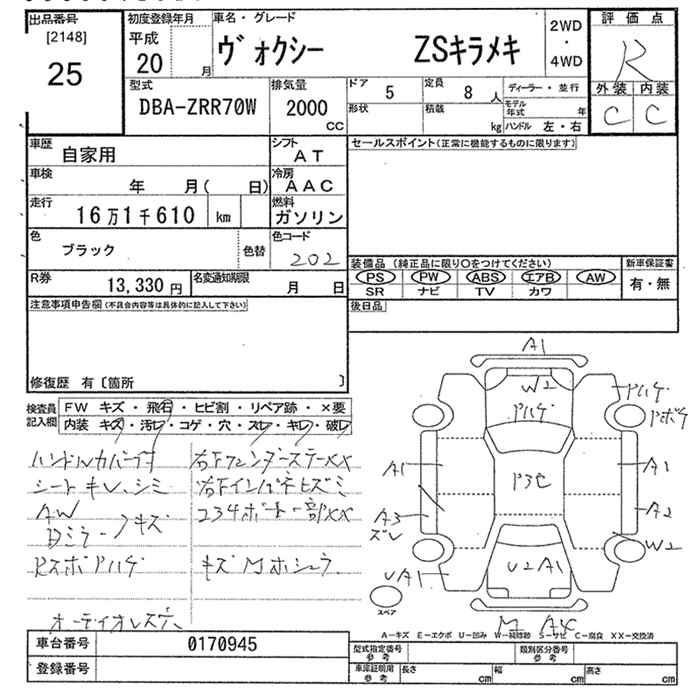 出品番号
[2148]
25
初度登録年月
平成
20
月
車名・グレード
ヴォクシー ZSキラメキ
2WD
・
4WD
評価点
R
外装 内装
C C
型式
DBA-ZRR70W
排気量
2000
CC
ドア 5
定員 8 人
形状
積載
kg
ディーラー・並行
モデル年式 年
ハンドル 左・右
車歴 自家用
シフト AT
車検 年 月( 日)
冷房 AAC
走行 16万1千610 km
燃料 ガソリン
色 ブラック 色替
色コード 202
R券 13,330円
名変通知期限 月 日
セールスポイント(正常に機能するものに限ります)
装備品 (純正品に限り〇をつけてください)
PS PW ABS エアB AW
SR ナビ TV カワ
新車保証書
有・無
後日品
注意事項申告欄(不具合内容等は具体的に記入して下さい)
修復歴 有〔箇所 〕
検査員記入欄
FW キズ・飛石・ヒビ割・リペア跡・×要
内装 キズ・汚レ・コゲ・穴・スレ・キレ・破レ
ハンドルカバー付
シートキレ、シミ
AW
Dミラー キズ
Rスポ ハゲ
オーディオレス穴
右Fフェンダーステー××
右Fインパネヒズミ
234ボート一部××
キズ
A1
W2
ハゲ
ハゲ
ボケ
A1
A1
A3
ズレ
A2
W2
UA1
U2 A1
スペア
M A4
A-キズ E-エクボ U-凹み W-補修跡 S-サビ C-腐食 XX-交換済
車台番号 0170945
登録番号
型式指定番号 参考
類別区分番号 参考
車庫証明用 参考
長さ cm
幅 cm
高さ cm